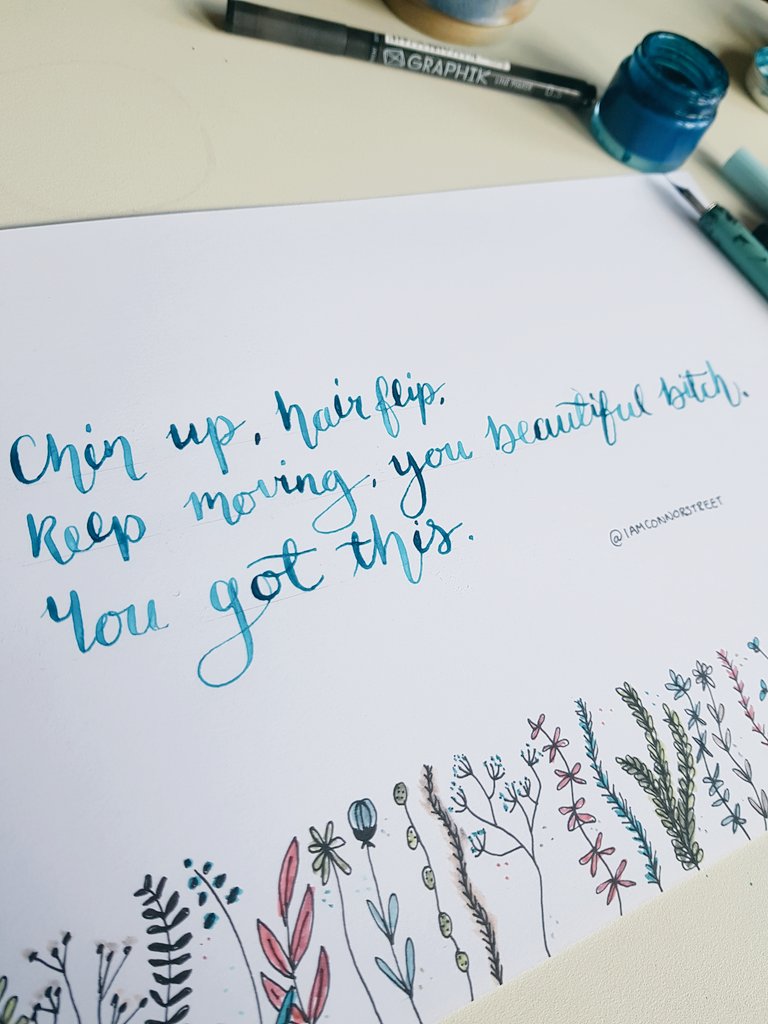 GRAPHIK
LINE MAKER 0.5
Chin up, hair flip,
Keep moving, you beautiful bitch.
You got this.
@IAMCONNORSTREET